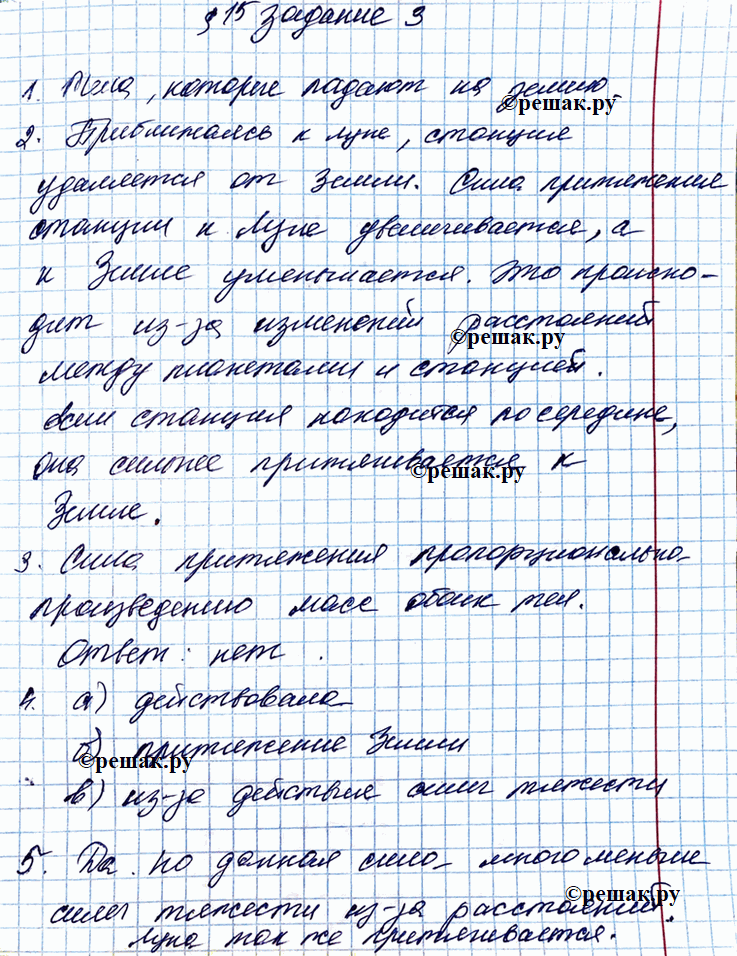 § 15 Задание 3
1. Тела, которые падают на землю.
©решак.ру
2. Приближаясь к луне, станция
удаляется от Земли. Сила притяжения
станции к Луне увеличивается, а
к Земле уменьшается. Это происхо-
дит из-за изменений расстояний
©решак.ру
между планетами и станцией.
Если станция находится посередине,
она сильнее притягивается к
©решак.ру
Земле.
3. Сила притяжения пропорциональна
произведению масс обоих тел.
Ответ: нет.
4. а) действовала
б) притяжение Земли
©решак.ру
в) из-за действия силы тяжести
5. Да. но данная сила много меньше
©решак.ру
силы тяжести из-за расстояний.
Луна так же притягивается.